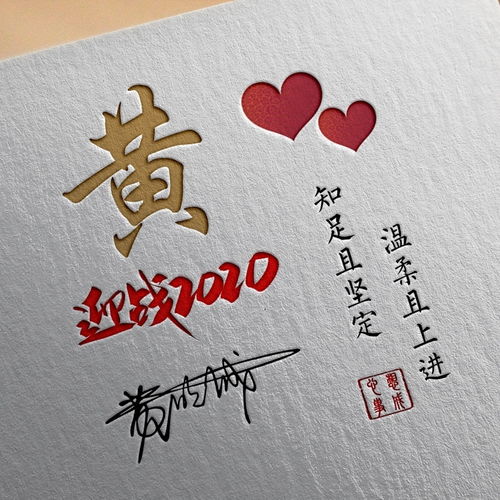 黄
迎战2020
知足且坚定
温柔且上进